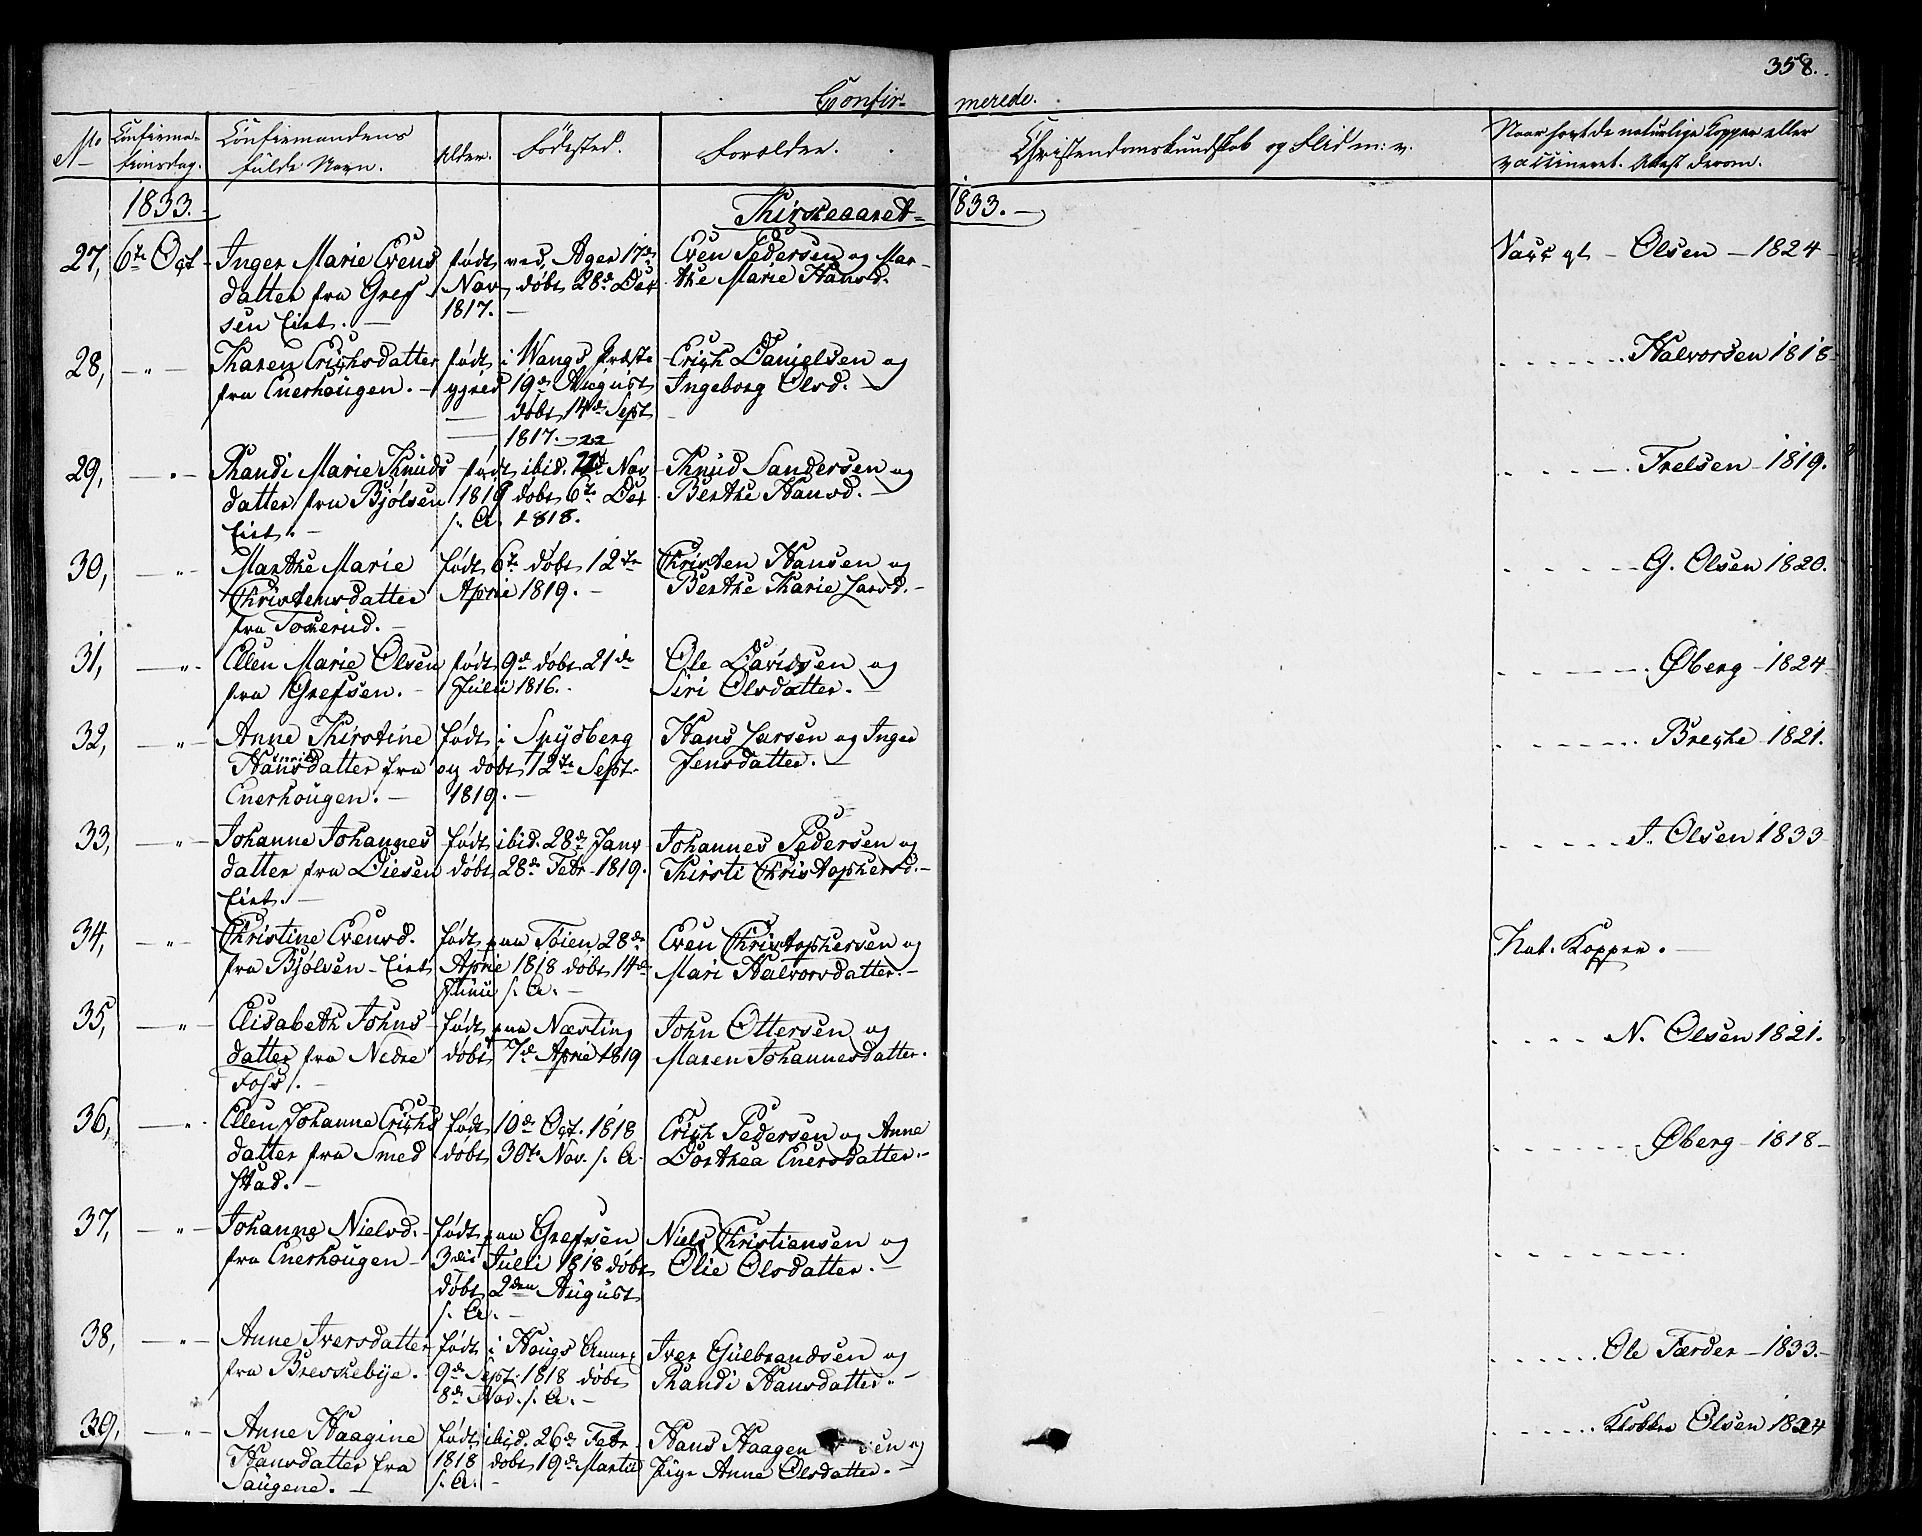 358.
Confir- merede.
No Confirma- Confirmandens Alder. Fødested. Forældre. Christendomskundskab og Flid m: v. Naar havt de naturlige Kopper eller
tionsdag. fulde Navn. vaccineret. Attest derom.
1833. Kirkeaaret 1833.
27, 6te Oct Inger Marie Evens født ved Ager 17de Even Pedersen og Mar- Vacc at - Olsen - 1824
datter fra Gref Nov døbt 28de Dec the Marie Hansd.
sen Eiet. 1817.
28, - " - Karen Erichsdatter født i Wangs Præste Erich Danielsen og Halvorsen 1818
fra Enerhougen. - gjeld 19de August Ingeborg Olsd. -
døbt 14de Sept
1817. 22
29, - " - Randi Marie Knuds født ibid. Nov Knud Sandersen og Frelsen - 1819.
datter fra Bjølsen 1818 døbt 6te Dec Berthe Hansd. -
Eiet. - s. A. 1818.
30, - " Marthe Marie født 6te døbt 12te Christen Hansen og G. Olsen 1820.
Christensdatter April 1819. - Berthe Karie Larsd. -
fra -
31, - " - Ellen Marie Olsen født 9de døbt 21de Ole Davidsen og Øberg - 1824
fra Grefsen. - Julii 1816. - Siri Olsdatter. -
32, - " Anne Kirstine født i Spydberg Hans Larsen og Inger Brecke - 1821.
Hansdatter fra og døbt 12te Sept. Jensdatter. -
Enerhougen. - 1819. -
33, - " Johanne Johannes født ibid. 28de Janv Johannes Pedersen og J. Olsen 1833
datter fra Diesen døbt 28de Febr 1819. Kirsti Christophersd. -
Eiet. -
34, - " Christine Evensd. født paa Tøien 28de Even Christophersen og Nat. Kopper. -
fra Bjølsen - Eiet April 1818 døbt 14de Mari Halvorsdatter. -
Junii s. A. -
35, - " Elisabeth Johns født paa Næsting John Ottersen og N. Olsen 1821.
datter fra Nedre døbt 7de April 1819 Maren Johannesdatter.
Foss. -
36, - " Ellen Johanne Erichs født 10de Oct. 1818 Erich Pedersen og Anne Øberg - 1818 -
datter fra Smed døbt 30te Nov. s. A. Dorthea Enersdatter. -
stad. -
37, - " - Johanne Nielsd. født paa Grefsen Niels Christiansen og
fra Enerhougen - 3die Julii 1818 døbt Olie Olsdatter. -
døbt 2den August
s. A. -
38, - " - Anne Iversdatter født i Hougs Annex Iver Gulbrandsen og Ole Færder - 1833. -
fra Breskebye. 9de Sept. 1818 døbt Randi Hansdatter. -
8de Nov. s. A. -
39, - " - Anne Haagine født ibid. 26de Febr Hans Haagen og Olsen 1824
Hansdatter fra 1818 døbt 19de Martii Pige Anne Olsdatter. -
Saugene. - s. A. -